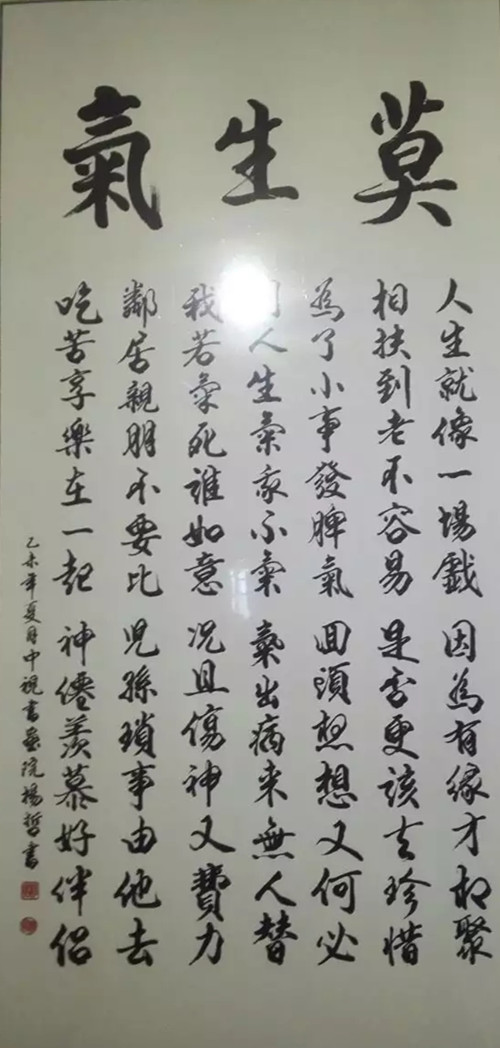 莫生氣
人生就像一場戲 因為有緣才相聚
相扶到老不容易 是否更該去珍惜
為了小事發脾氣 回頭想想又何必
人生氣我不氣 氣出病来無人替
我若氣死誰如意 况且傷神又費力
鄰居親朋不要比 兒孫瑣事由他去
吃苦享樂在一起 神僊羨慕好伴侣
乙未年夏月中視書畫院楊哲書